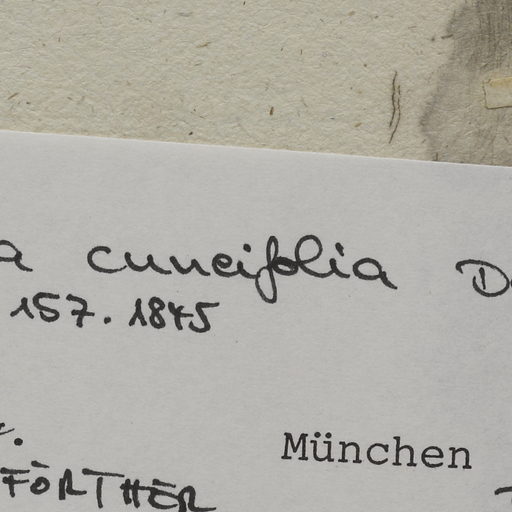 a cuneifolia D
157. 1845
München
FÖRTHER